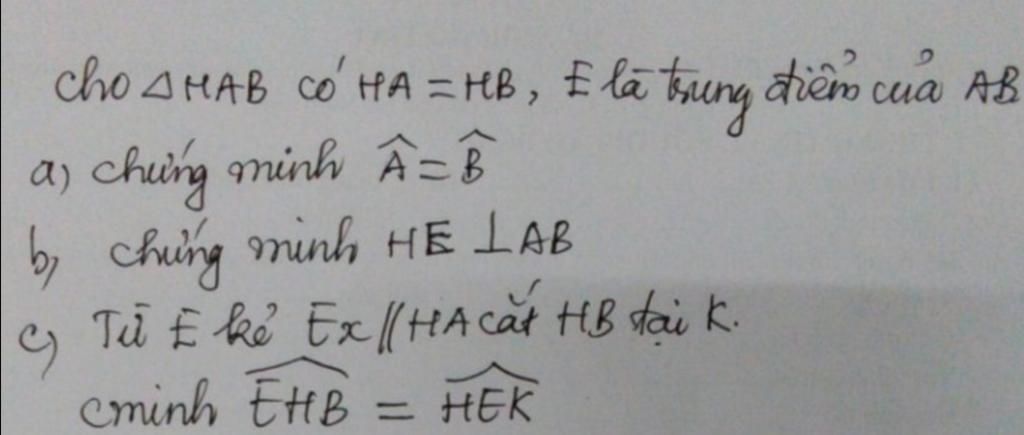 Cho △HAB có HA = HB, E là trung điểm của AB
a) chứng minh Â = B̂
b) chứng minh HE ⊥ AB
c) Từ E kẻ Ex // HA cắt HB tại K.
cminh \widehat{EHB} = \widehat{HEK}